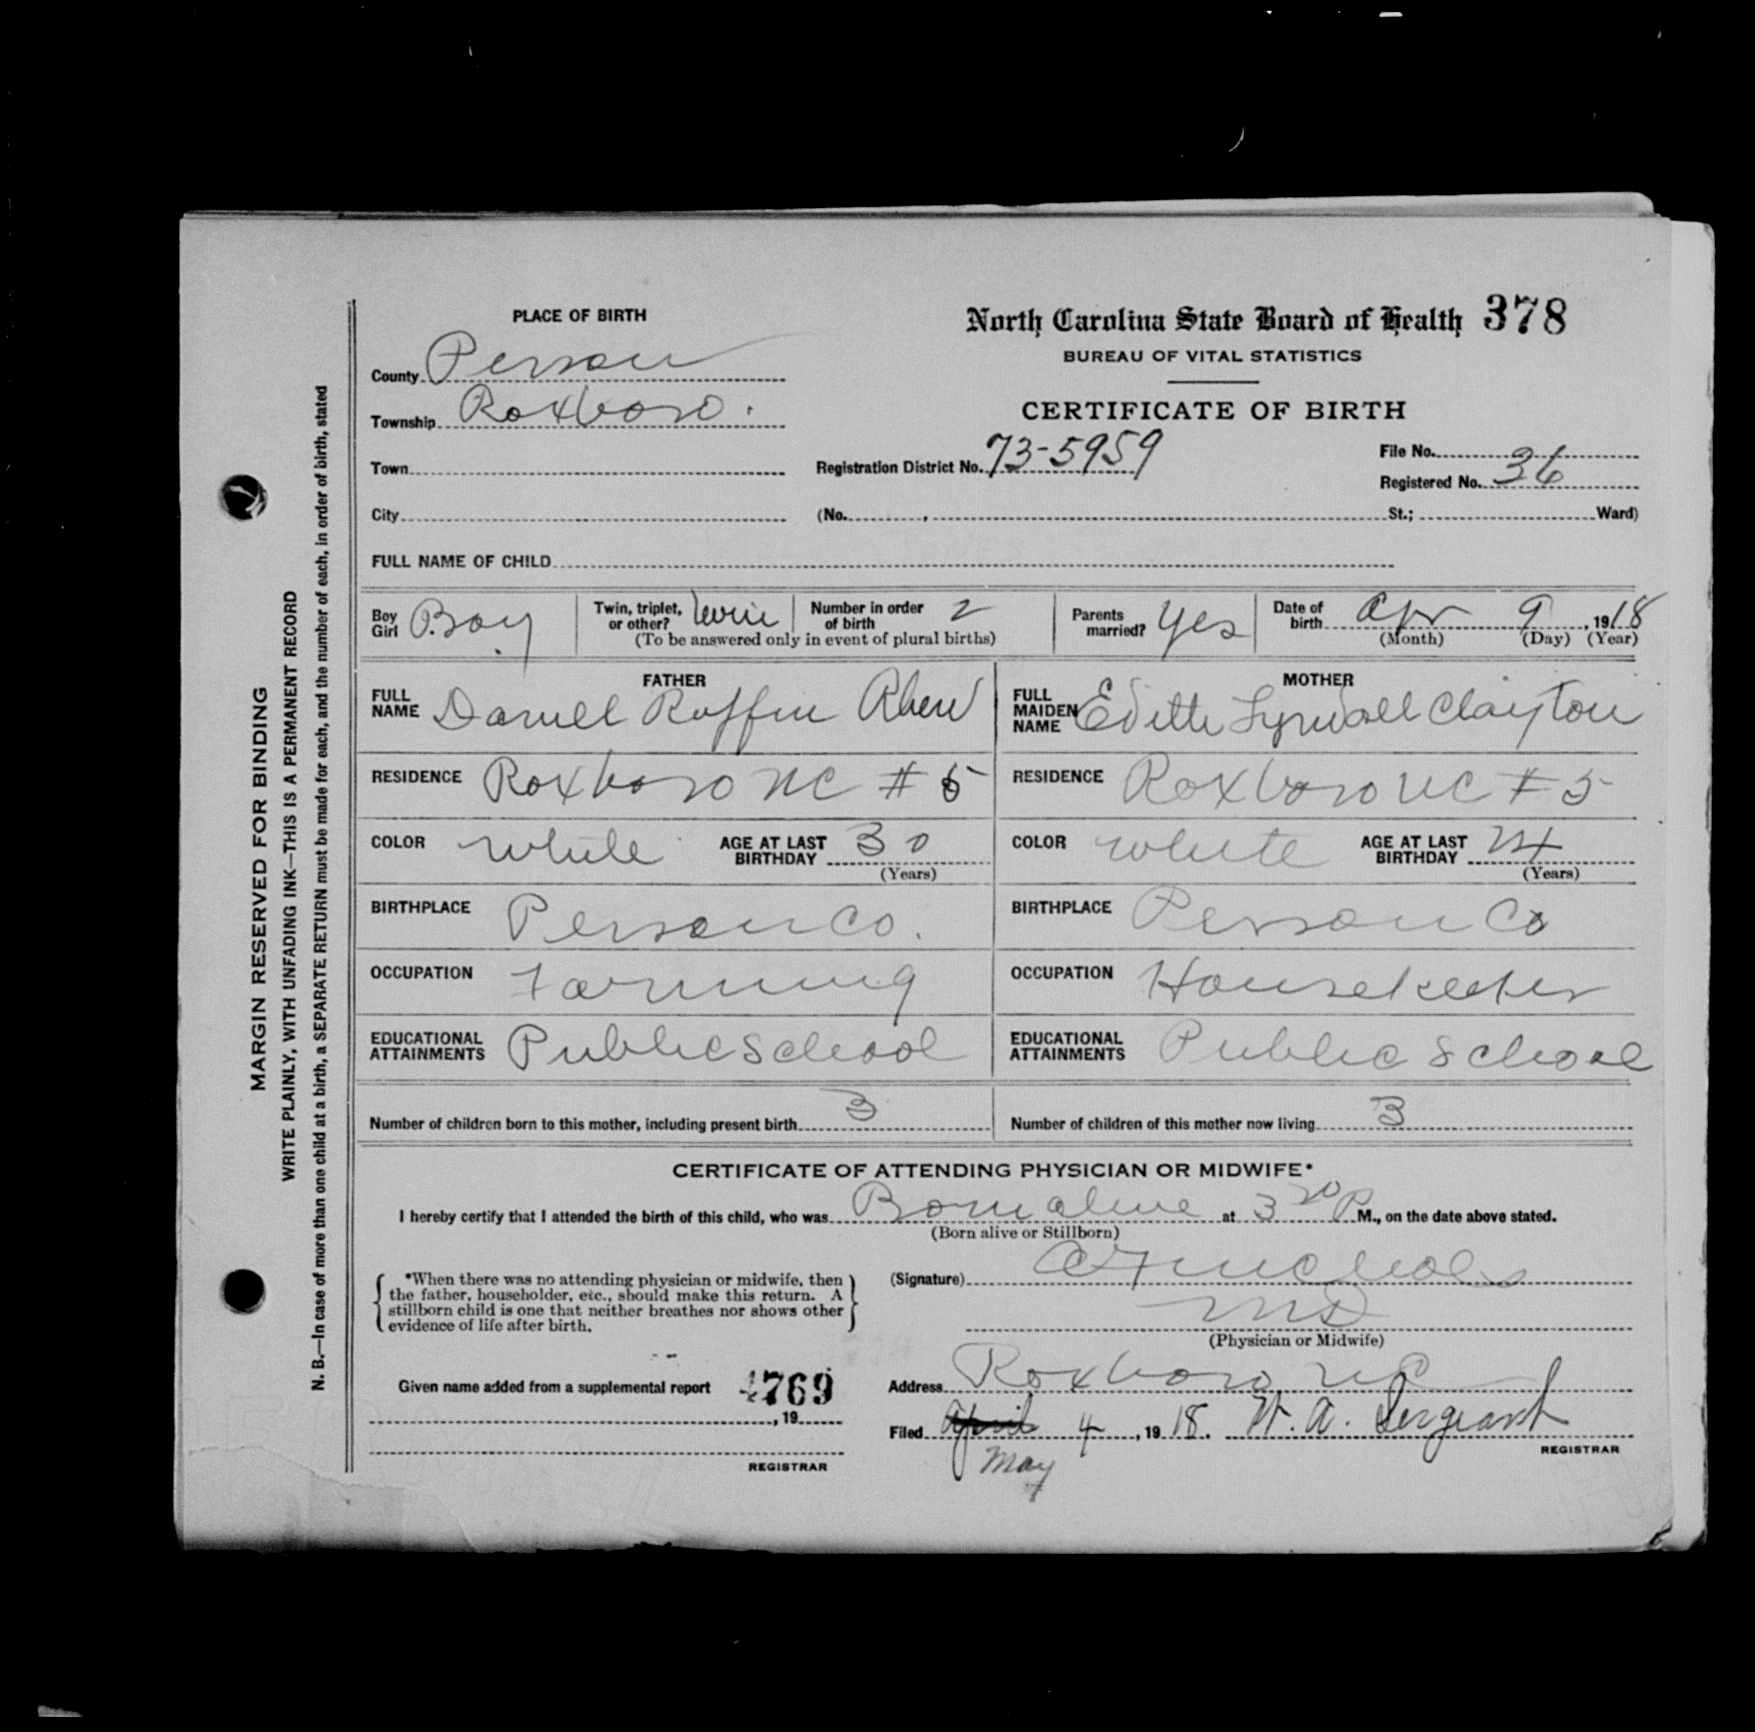 PLACE OF BIRTH
County Person
Township Roxboro.
Town
City
North Carolina State Board of Health 378
BUREAU OF VITAL STATISTICS
CERTIFICATE OF BIRTH
Registration District No. 73-5959
File No.
Registered No. 36
(No. , St.; Ward)
FULL NAME OF CHILD
Boy Girl Boy
Twin, triplet, or other? Twin
Number in order of birth 2
(To be answered only in event of plural births)
Parents married? Yes
Date of birth Apr 9, 1918
(Month) (Day) (Year)
FATHER
FULL NAME Daniel Ruffin Rhew
RESIDENCE Roxboro NC # 5
COLOR White AGE AT LAST BIRTHDAY 30
(Years)
BIRTHPLACE Person Co.
OCCUPATION Farming
EDUCATIONAL ATTAINMENTS Public School
MOTHER
FULL MAIDEN NAME Edith Clayton
RESIDENCE Roxboro NC # 5
COLOR White AGE AT LAST BIRTHDAY 24
(Years)
BIRTHPLACE Person Co
OCCUPATION Housekeeper
EDUCATIONAL ATTAINMENTS Public School
Number of children born to this mother, including present birth 3
Number of children of this mother now living 3
CERTIFICATE OF ATTENDING PHYSICIAN OR MIDWIFE*
I hereby certify that I attended the birth of this child, who was Born alive at 3 30 P M., on the date above stated.
(Born alive or Stillborn)
*When there was no attending physician or midwife, then
the father, householder, etc., should make this return. A
stillborn child is one that neither breathes nor shows other
evidence of life after birth.
(Signature) Nichols
MD
(Physician or Midwife)
Given name added from a supplemental report 4769
, 19
REGISTRAR
Address Roxboro NC
Filed April 4, 1918. W. A. Sergeant
May
REGISTRAR
MARGIN RESERVED FOR BINDING
WRITE PLAINLY, WITH UNFADING INK—THIS IS A PERMANENT RECORD
N. B.—In case of more than one child at a birth, a SEPARATE RETURN must be made for each, and the number of each, in order of birth, stated